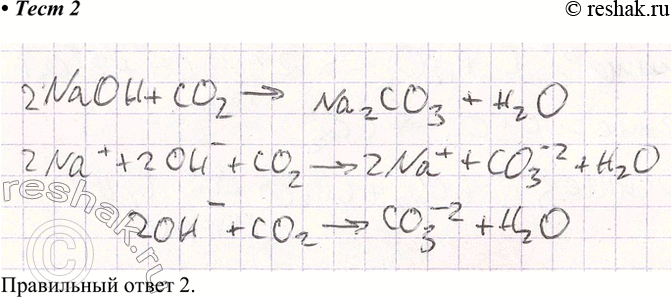 • Тест 2
© reshak.ru
2NaOH + CO₂ → Na₂CO₃ + H₂O
2Na⁺ + 2OH⁻ + CO₂ → 2Na⁺ + CO₃⁻² + H₂O
2OH⁻ + CO₂ → CO₃⁻² + H₂O
© reshak.ru
Правильный ответ 2.